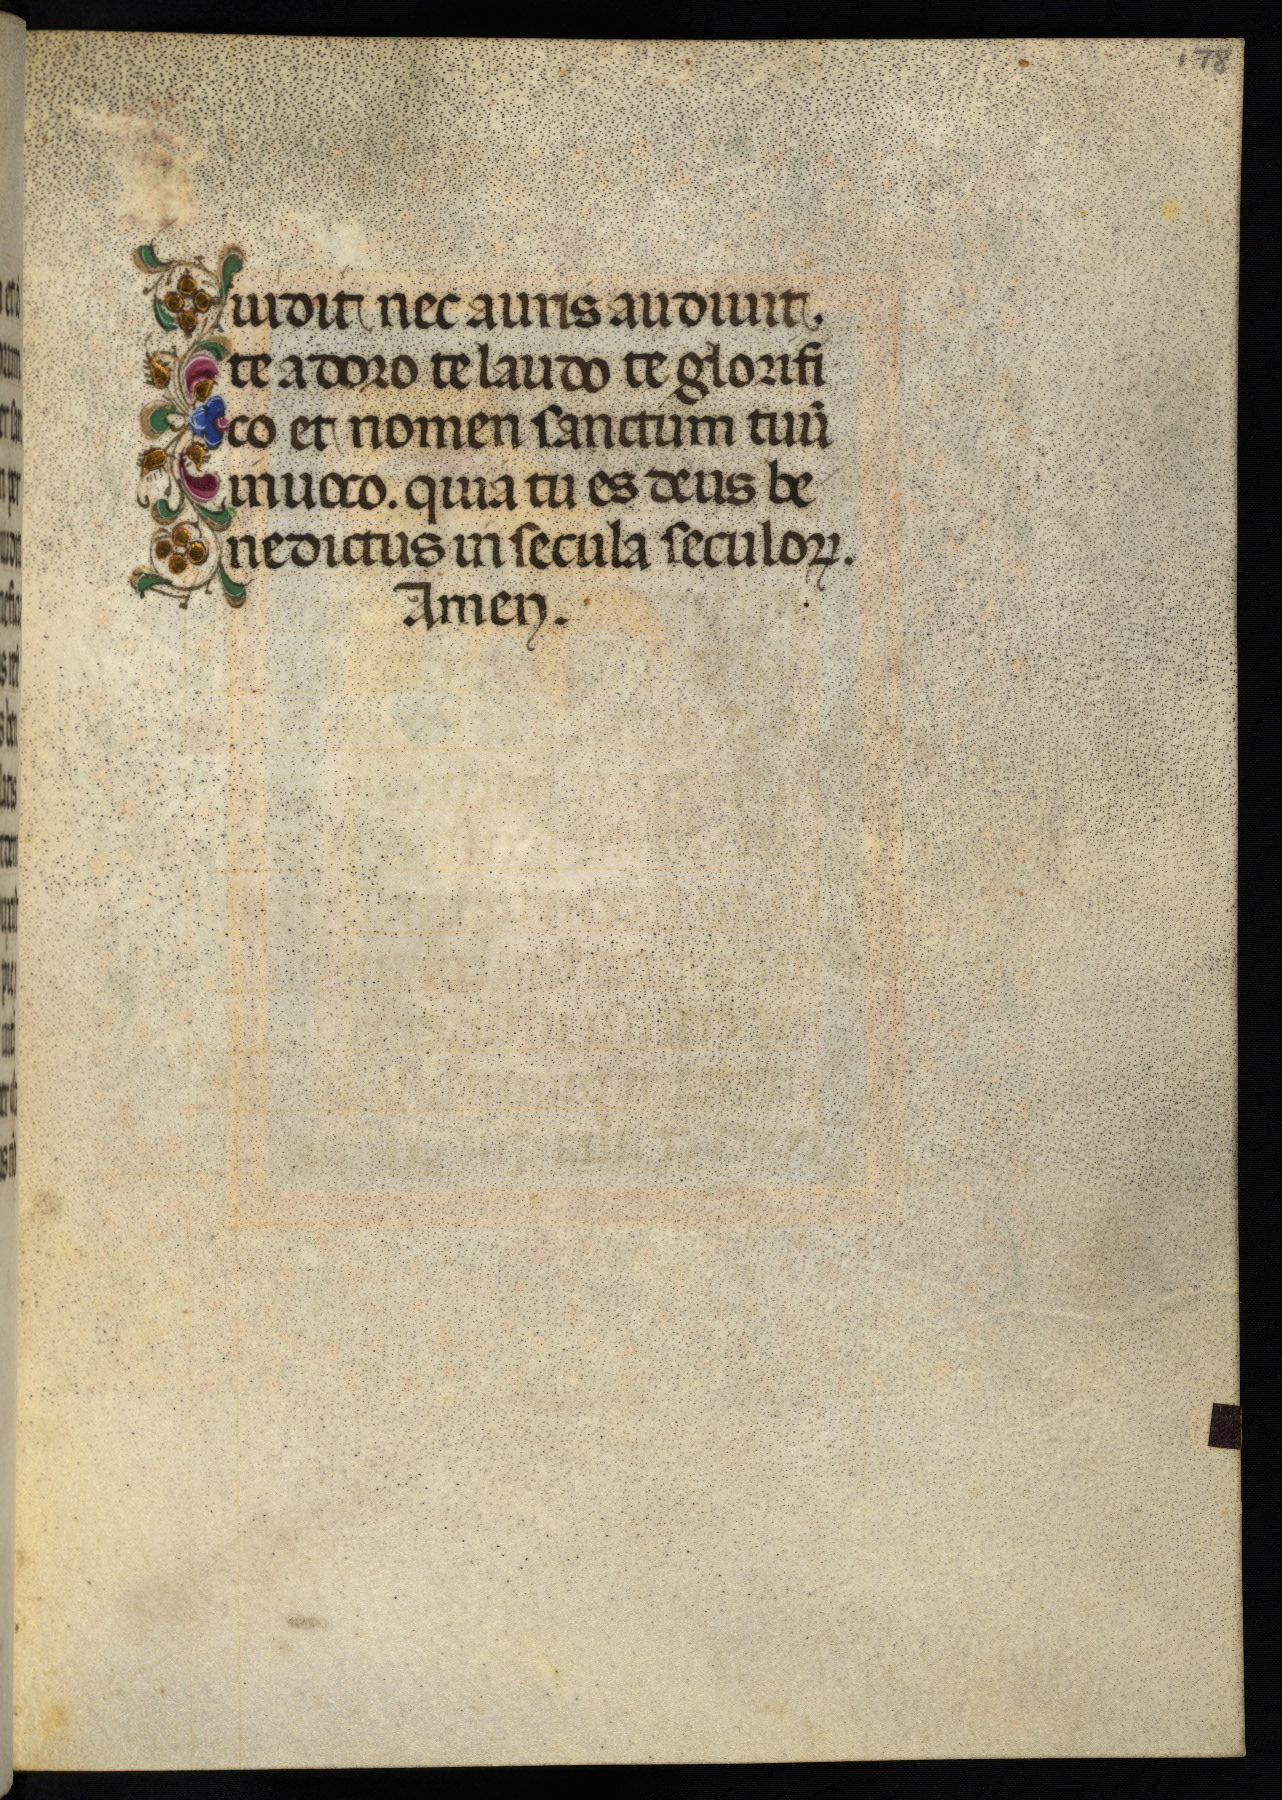 178
uidit nec auris audiuit.
te adoro te laudo te glorifi
co et nomen sanctum tuũ
inuoco. quia tu es deus be
nedictus in secula seculoꝝ.
Amen.